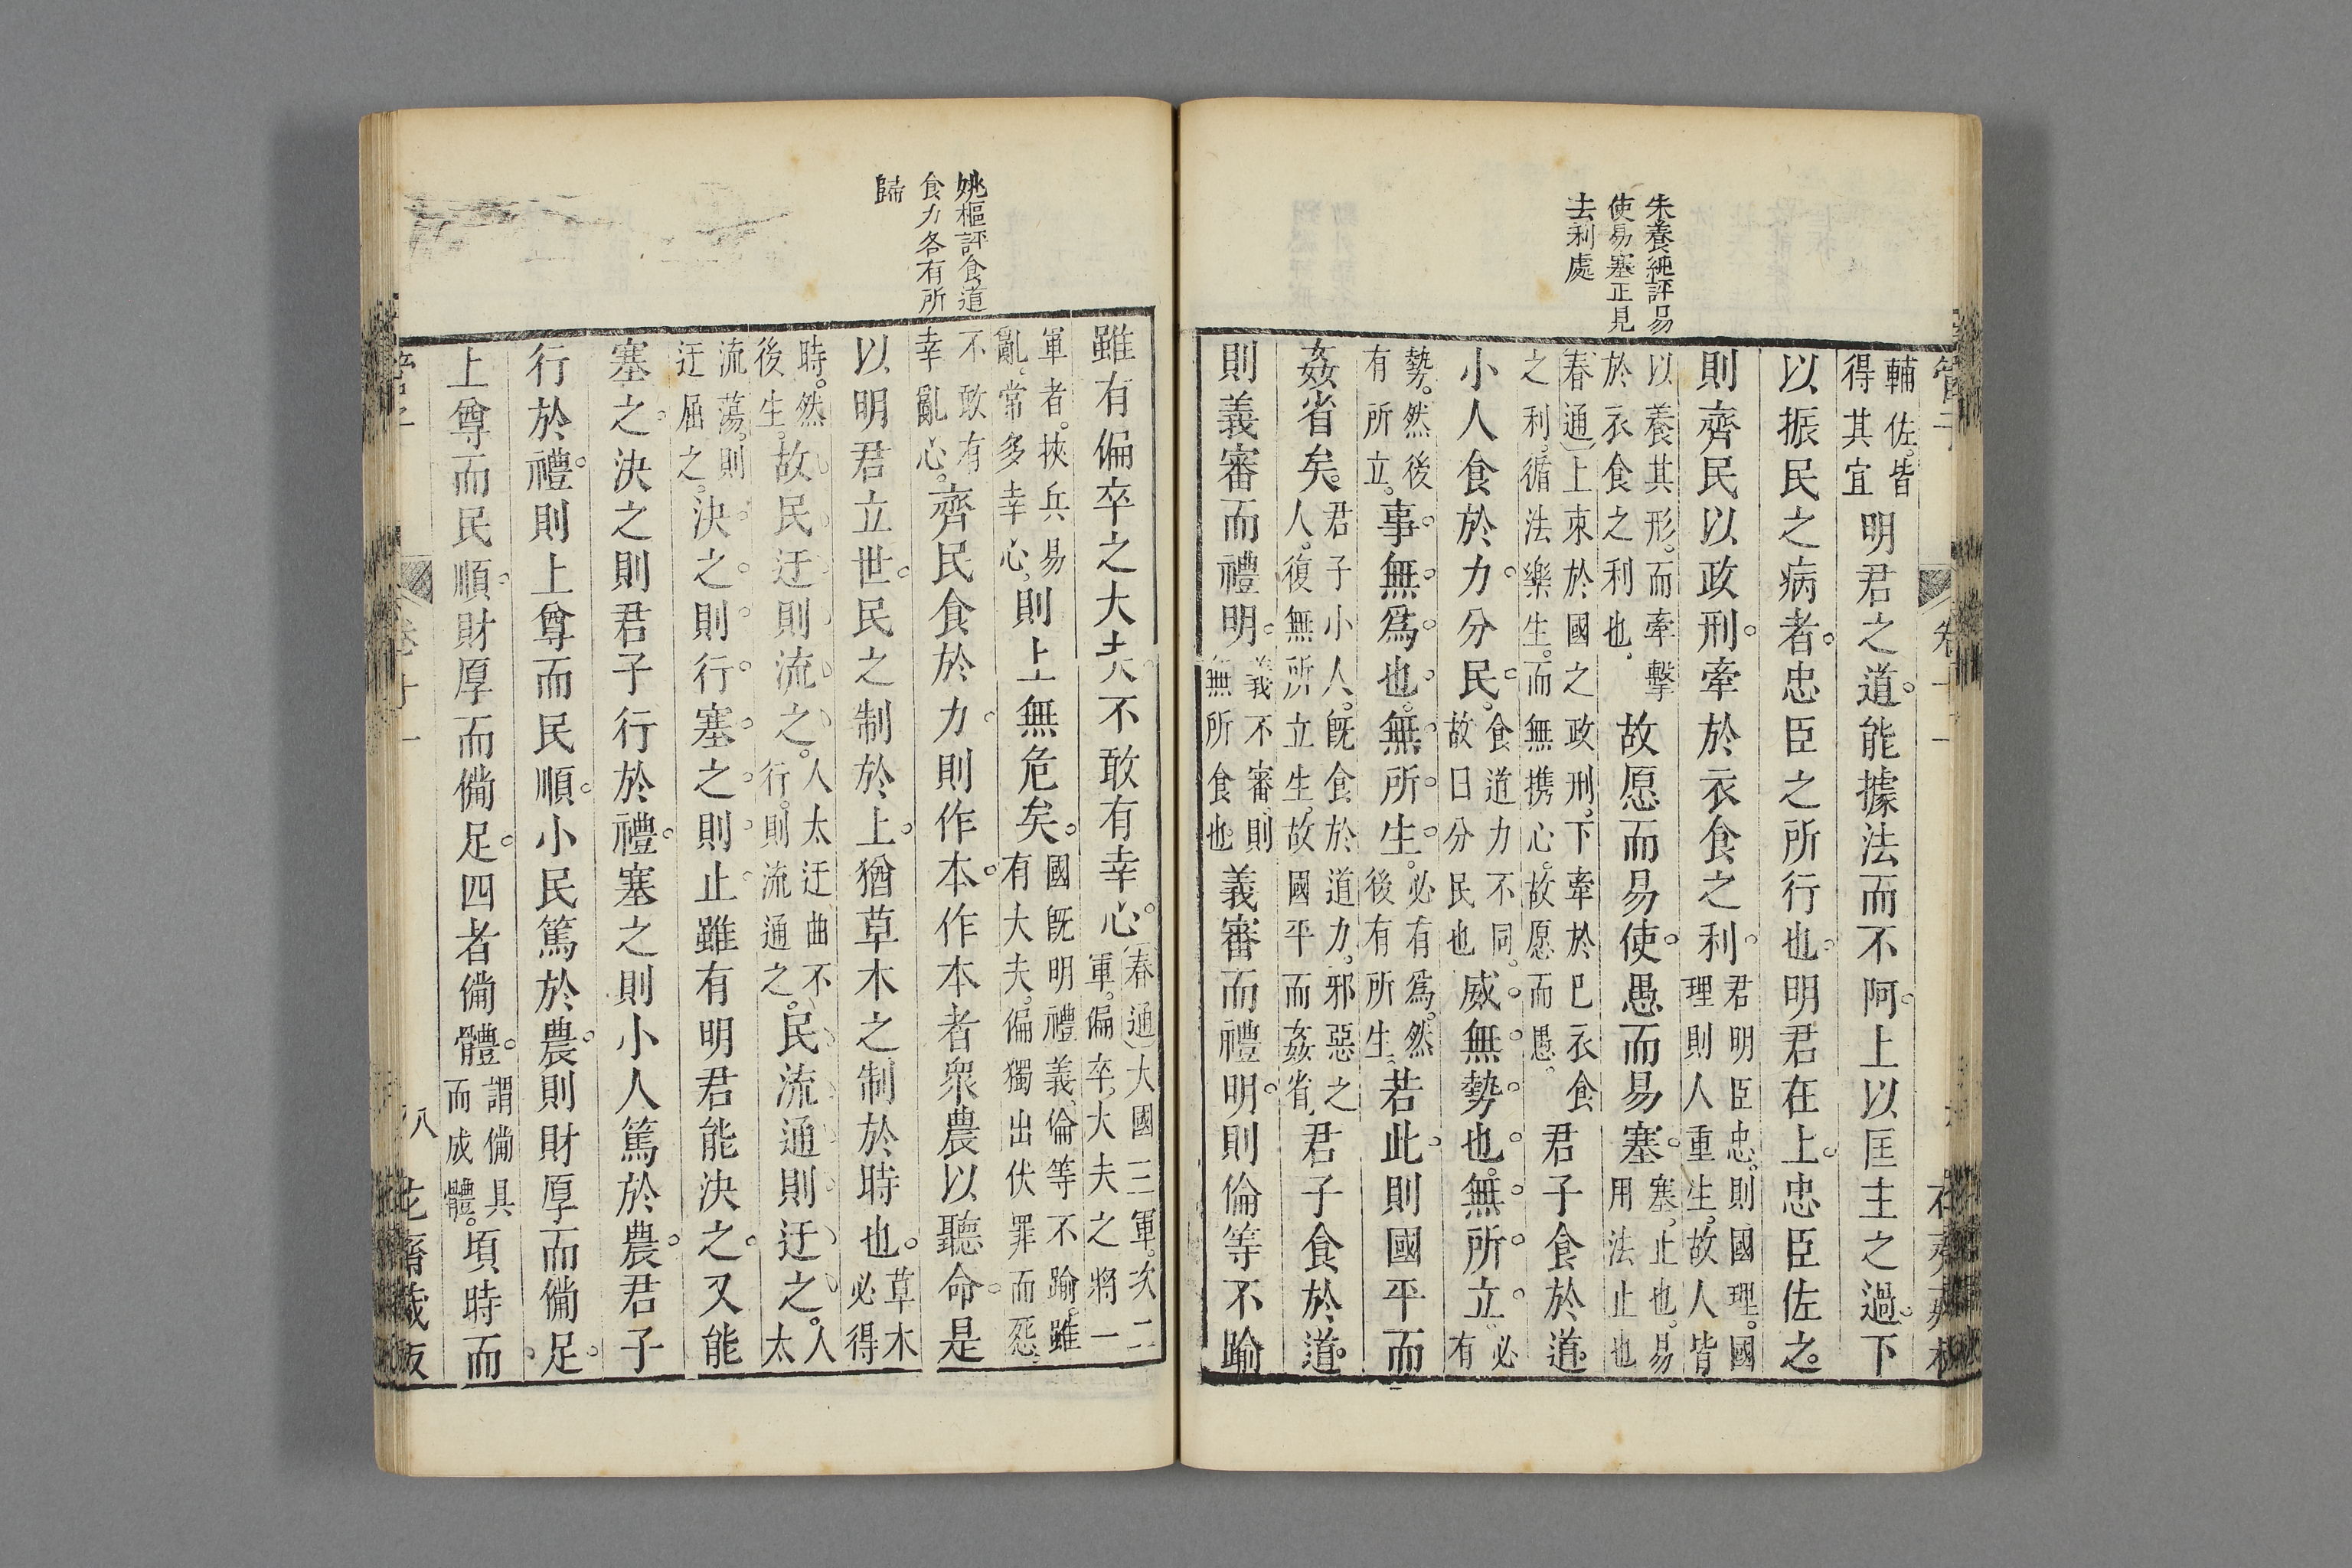 朱養純評易
使易塞正見
去利處
管子
輔佐。皆得其宜明君之道。能據法而不阿。上以匡主之過。下
以振民之病者。忠臣之所行也。明君在上。忠臣佐之。
則齊民以政刑。牽於衣食之利。君明臣忠。則國理。國理則人重生。故人皆
以養其形。而牽擊於衣食之利也。故愿而易使。愚而易塞。塞。止也。易用法止也
(春通)上束於國之政刑。下牽於巳衣食之利。循法樂生。而無携心。故愿而愚。君子食於道。
小人食於力。分民。食道力不同。故曰分民也威無勢也。無所立。必有
勢。然後有所立。事無爲也。無所生。必有爲。然後有所生。若此。則國平而
姦省矣。君子小人。既食於道力。邪惡之人。復無所立生。故國平而姦省。君子食於道。
則義審而禮明。義不審。則無所食也義審而禮明。則倫等不踰
姚樞評食道
食力各有所
歸
雖有偏卒之大夫。不敢有幸心。(春通)大國三軍。次二軍。偏卒。大夫之將一
軍者。挾兵易亂。常多幸心。則上無危矣。國既明禮義。倫等不踰。雖有大夫。偏獨出伏罪而怨。
不敢有幸亂心。齊民食於力則作本。作本者衆。農以聽命。是
以明君立世。民之制於上。猶草木之制於時也。草木必得
時。然後生。故民迂則流之。人太迂曲不行。則流通之。民流通則迂之。人太
流蕩。則迂屈之。決之則行。塞之則止。雖有明君能決之。又能
塞之。決之則君子行於禮。塞之則小人篤於農。君子
行於禮。則上尊而民順。小民篤於農。則財厚而備足。
上尊而民順。財厚而備足。四者備體。謂備具而成體。頃時而
八
花齋藏板